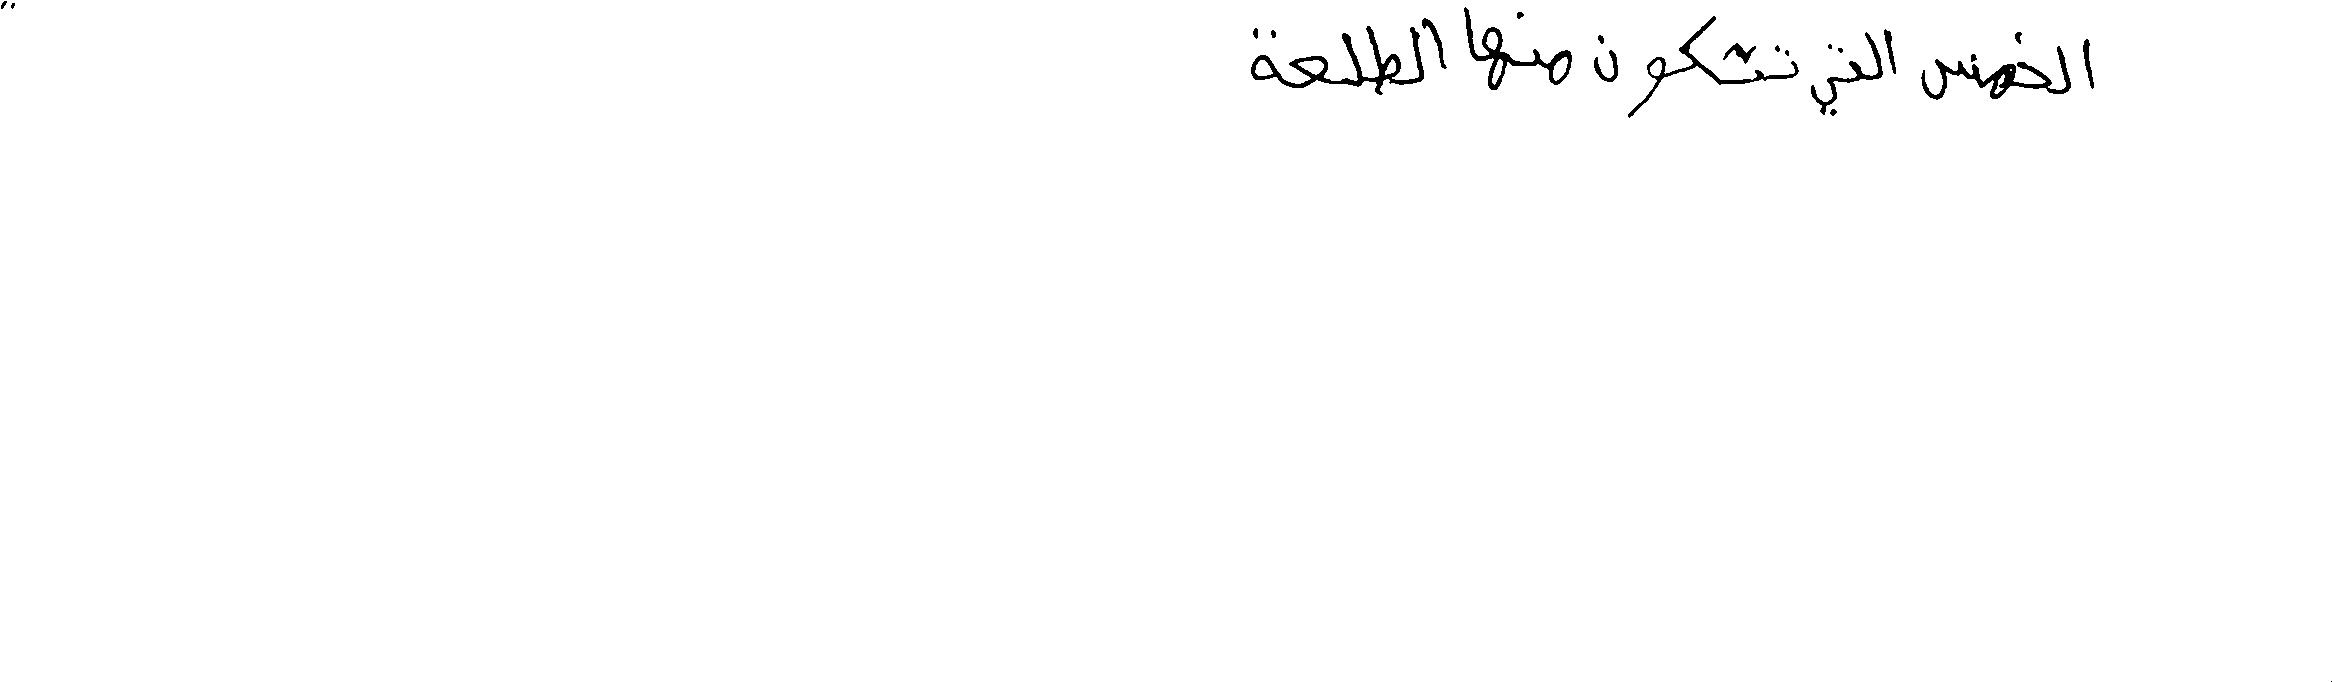 الخمس التي تتكون منها الطلعة